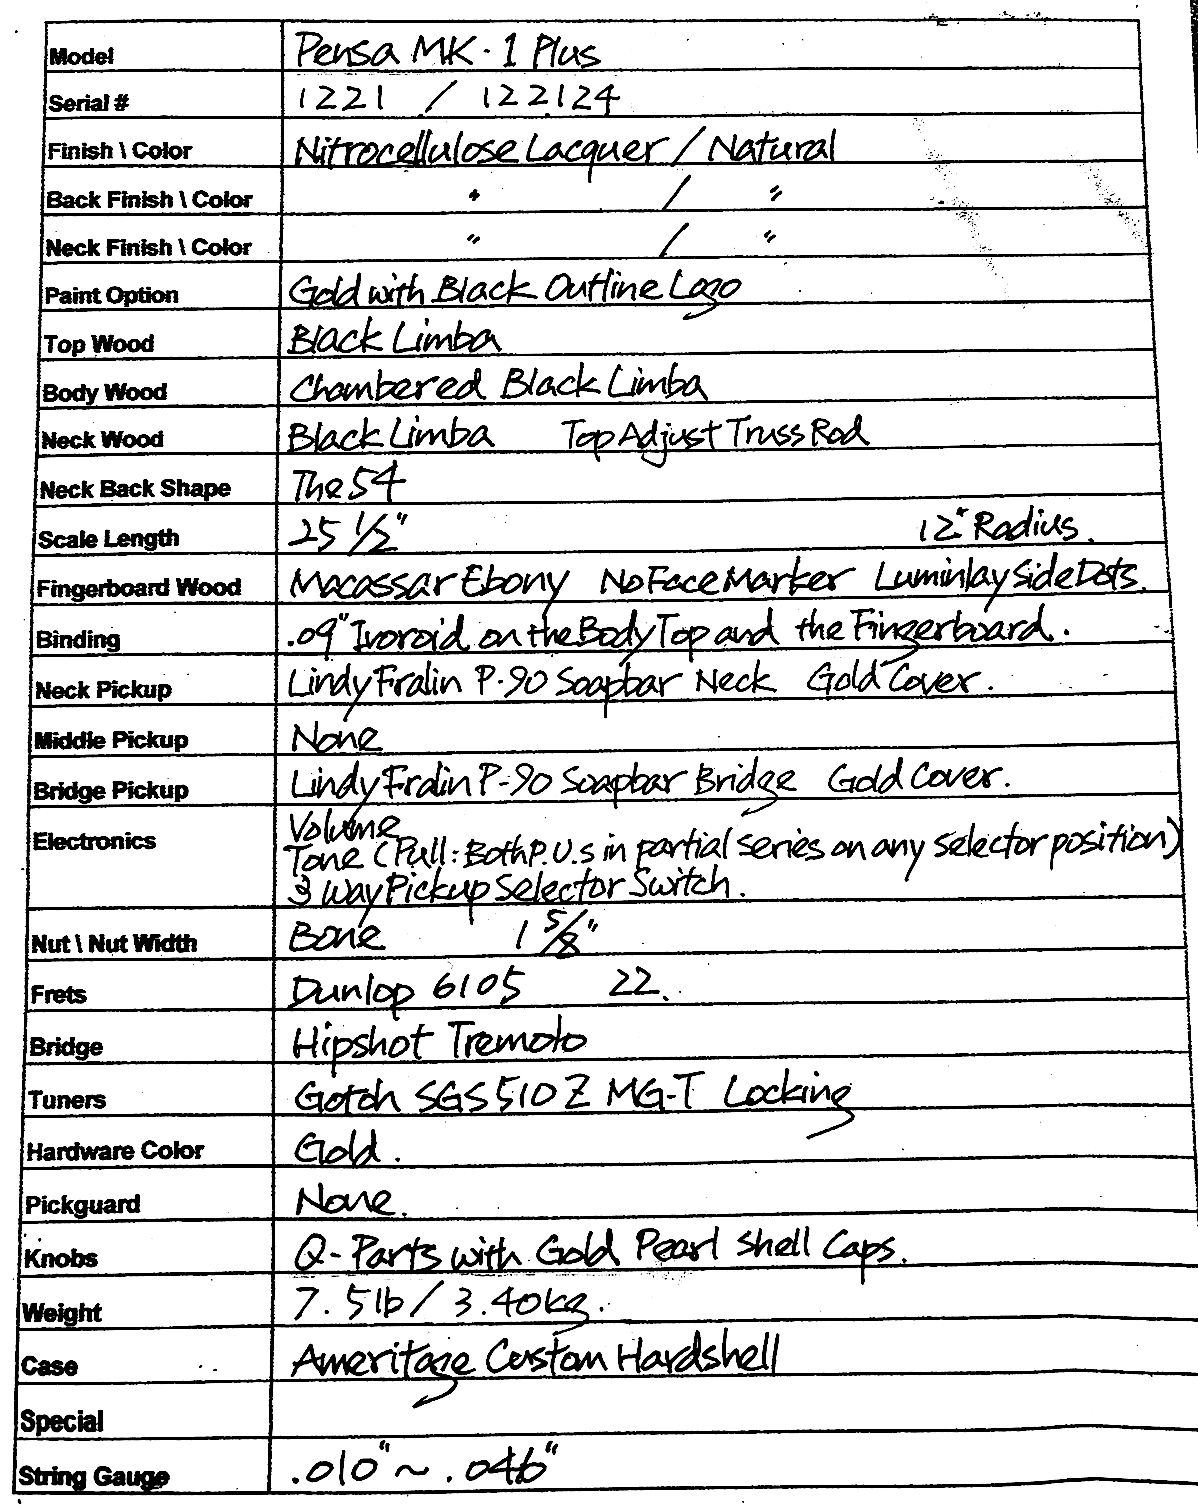 Model Pensa MK-1 Plus
Serial # 1221 / 122124
Finish \ Color Nitrocellulose Lacquer / Natural
Back Finish \ Color " / "
Neck Finish \ Color " / "
Paint Option Gold with Black Outline Logo
Top Wood Black Limba
Body Wood Chambered Black Limba
Neck Wood Black Limba Top Adjust Truss Rod
Neck Back Shape The 54
Scale Length 25 1/2" 12" Radius.
Fingerboard Wood Macassar Ebony No Face Marker Luminlay Side Dots.
Binding .09" Ivoroid on the Body Top and the Fingerboard.
Neck Pickup Lindy Fralin P-90 Soapbar Neck Gold Cover.
Middle Pickup None
Bridge Pickup Lindy Fralin P-90 Soapbar Bridge Gold Cover.
Electronics Volume
Tone (Pull: Both P.U.s in partial series on any selector position)
3 Way Pickup Selector Switch.
Nut \ Nut Width Bone 1 5/8"
Frets Dunlop 6105 22.
Bridge Hipshot Tremolo
Tuners Gotoh SGS510Z MG-T Locking
Hardware Color Gold.
Pickguard None.
Knobs Q-Parts with Gold Pearl Shell Caps.
Weight 7.5lb / 3.40kg.
Case Ameritage Custom Hardshell
Special
String Gauge .010" ~ .046"